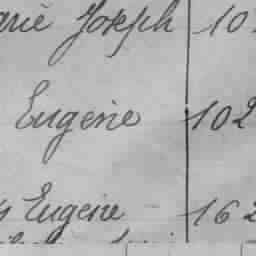 Joseph 10
Eugène 102
Eugene 162